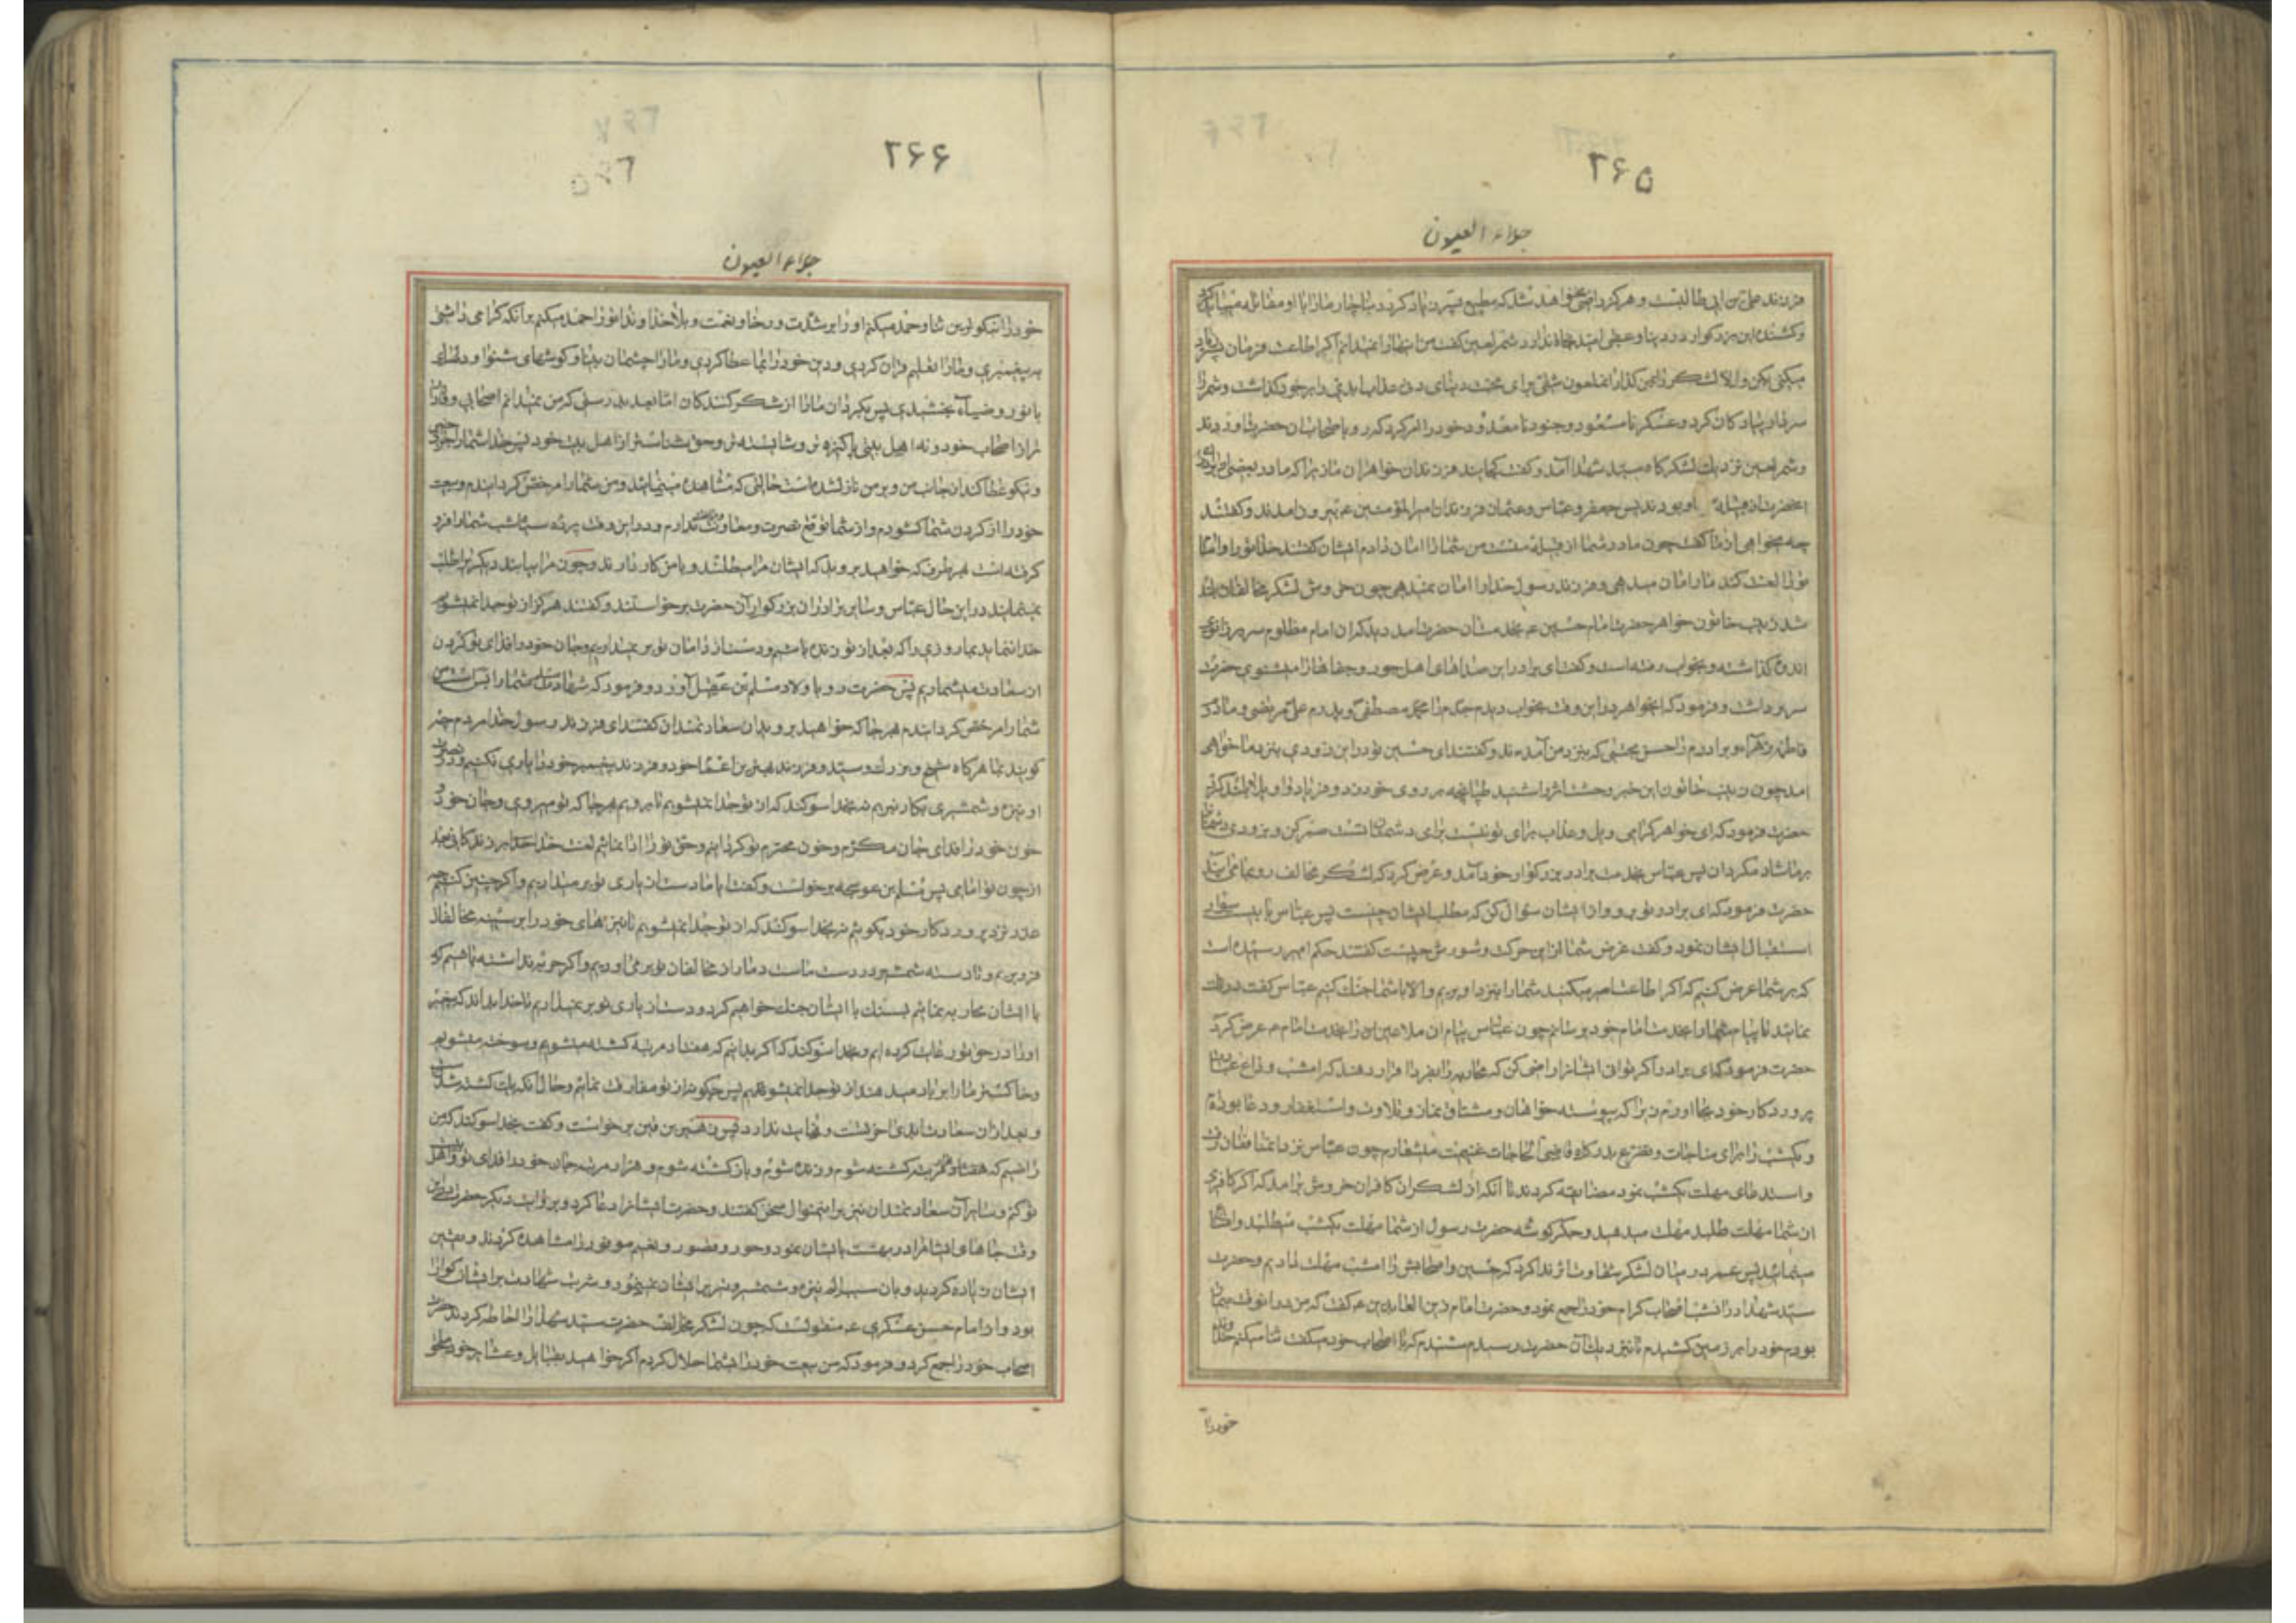 ۲۶۵
جلاء العیون
فرزند علی بن ابی طالبست و هرکز راضی نخواهد شد که مطیع پسر زیاد کردد ناچار مارا با او مقاتله میباید کرد
و کشنده این بزرکوار در دنیا و عقبی امید نجاة ندارد شمر لعین کفت من اینها را نمیدانم اکر اطاعت فرمان پسر زیاد
میکنی بکن و الا لشکر را بمن کذار انملعون شقی برای محبت دنیای دنی عذاب ابدی را بر خود کذاشت و شمر را
سر کرده پیادکان کرد و عسکر نامسعود و جنود نامعدود خود را امر کرد که رو باصحاب ان حضرت اوردند
و شمر لعین نزدیك لشکرکاه سید شهدا آمد و کفت کجایند فرزندان خواهران ما زیرا که مادر بعضی از برادران
انحضرت از قبیله او بودند پس جعفر و عباس و عثمان فرزندان امیر المؤمنین ع بیرون امدند و کفتند
چه میخواهی از ما کفت چون مادر شما از قبیله منست من شما را امان دادم ایشان کفتند خدا تو را و امان
تو را لعنت کند مارا امان میدهی و فرزند رسول خدا را امان نمیدهی چون خروش لشکر مخالفان بلند
شد زینب خاتون خواهر حضرت امام حسین ع بخدمت ان حضرت امد دید که ان امام مظلوم سر بر زانوی
اندوه کذاشته و بخواب رفته است و کفت ای برادر این صداهای اهل جور و جفا را نمیشنوی حضرت
سر برداشت و فرمود که ایخواهر در این وقت بخواب دیدم جدم محمد مصطفی و پدرم علی مرتضی و مادرم
فاطمه زهرا و برادرم حسن مجتبی که بنزد من آمدند و کفتند ای حسین تو در این زودی بنزد ما خواهی
امد چون زینب خاتون این خبر وحشت اثر را شنید طپانچه بر روی خود زد و فریاد واویلاه بلند کرد
حضرت فرمود که ای خواهر کرامی ویل و عذاب برای تو نیست برای دشمنان تست صبر کن و بزودی دشمنان را
بر ما شاد مکردان پس عباس بخدمت برادر بزرکوار خود آمد و عرض کرد که لشکر مخالف رو بما می آیند
حضرت فرمود که ای برادر تو برو و از ایشان سؤال کن که مطلب ایشان چیست پس عباس با بیست سوار
استقبال ایشان نمود و کفت غرض شما از این حرکت و شورش چیست کفتند حکم امیر رسیده است
که بر شما عرض کنیم که اکر اطاعت امیر میکنید شما را بنزد او بریم و الا با شما جنك کنیم عباس کفت درنك
نمائید تا پیام شما را بخدمت امام خود برسانم چون عباس پیام ان ملاعین را بخدمت امام ع عرض کرد
حضرت فرمود که ای برادر اکر توانی ایشانرا راضی کن که محاربه را بفردا قرار دهند که امشب وداع عبادت
پروردکار خود بجا اورم زیرا که پیوسته خواهان و مشتاق نماز و تلاوت و استغفار و دعا بوده ام
و یکشب را برای مناجات و تضرع بدرکاه قاضی الحاجات غنیمت میشمارم چون عباس نزد انمنافقان رفت
و استدعای مهلت یکشب نمود مضایقه کردند تا آنکه از لشکر ان کافران خروش برآمد که اکر کافری
از شما مهلت طلبد مهلت میدهید و جکر کوشه حضرت رسول از شما مهلت یکشب میطلبد و ابا
مینمائید پس عمر در میان لشکر شقاوت اثر ندا کرد که حسین و اصحابش را امشب مهلت دادیم و حضرت
سید شهدا در انشب اصحاب کرام خود را جمع نمود و حضرت امام زین العابدین ع کفت که من در انوقت بیمار
بودم خود را بر زمین کشیدم تا نزدیك آن حضرت رسیدم شنیدم که با اصحاب خود میکفت ثنا میکنم خداوند
خود را
۲۶۶
جلاء العیون
خود را نیکوترین ثنا و حمد میکنم او را بر شدت و رخا و نعمت و بلا خداوندا تو را حمد میکنم برانکه کرامی داشتی
به پیغمبری و مارا تعلیم قران کردی و دین خود را بما عطا کردی و مارا چشمان بینا و کوشهای شنوا و دلهای
با نور و ضیاء بخشیدی پس بکردان مارا از شکر کنندکان اما بعد بدرستی که من نمیدانم اصحابی وفادارتر
از اصحاب خود و نه اهل بیتی پاکیزه تر و شایسته تر و حق شناس تر از اهل بیت خود پس خدا شما را جزای
نیکو عطا کند از جانب من و بر من نازل شده است حالتی که مشاهده مینمائید و من شما را مرخص کردانیدم و بیعت
خود را از کردن شما کشودم و از شما توقع نصرت و معاونت ندارم و در این وقت پرده سیاه شب شما را فرو
کرفته است بهر طرف که خواهید بروید که ایشان مرا میطلبند و با من کار دارند و چون مرا بیابند دیکریرا طلب
نمینمایند در این حال عباس و سایر برادران بزرکوار آن حضرت برخواستند و کفتند هرکز از تو جدا نمیشویم
خدا ننماید بما روزی را که بعد از تو زنده باشیم و دست از دامان تو بر نمیداریم و جان خود را فدای تو کردن
از سعادت میشماریم پس حضرت رو باولاد مسلم بن عقیل آورد و فرمود که شهادت مسلم شما را بس است من
شما را مرخص کردانیدم هر جا که خواهید بروید ان سعادتمندان کفتند ای فرزند رسول خدا مردم چه
کویند بما هرکاه شیخ و بزرك و سید و فرزند بهترین اعمام خود و فرزند پیغمبر خود را یاری نکنیم و در نصرت
او نیزه و شمشیری بکار نبریم نه بخدا سوکند که از تو جدا نمیشویم تا برویم هر جا که تو میروی و جان خود و
خون خود را فدای جان مکرم و خون محترم تو کردانیم و حق تو را ادا نمائیم لعنت خدا بر زندکانی بعد
از چون تو امامی پس مسلم بن عوسجه برخواست و کفت ایا ما دست از یاری تو بر میداریم و اکر چنین کنیم چه
عذر نزد پروردکار خود بکوئیم نه بخدا سوکند که از تو جدا نمیشویم تا نیزهای خود را بر سینه مخالفان
فرو بریم و تا دسته شمشیر در دست ماست دمار از مخالفان تو بر می اوریم و اکر حربه نداشته باشیم که
با ایشان محاربه نمائیم بسنك با ایشان جنك خواهیم کرد و دست از یاری تو بر نمیداریم تا خدا بداند که پیغمبر
او را در حق تو رعایت کرده ایم و بخدا سوکند که اکر بدانیم که هفتاد مرتبه کشته میشویم و سوخته میشویم
و خاکستر مارا بر باد میدهند از تو جدا نمیشویم پس چکونه از تو مفارقت نمائیم و حال آنکه یك کشته شدنست
و بعد از ان سعادت ابدی اخرتست و نهایت ندارد پس زهیر بن قین برخواست و کفت بخدا سوکند که من
راضیم که هزار مرتبه کشته شوم و زنده شوم و باز کشته شوم و هزار مرتبه جان خود را فدای تو و اهل بیت
تو کنم و سایر آن سعادتمندان نیز بر اینمنوال سخن کفتند و حضرت ایشانرا دعا کرد و بروایت دیکر حضرت در این
وقت جاهای ایشانرا در بهشت بایشان نمود و حور و قصور و نعیم موفور را مشاهده کردند و یقین
ایشان زیاده کردید و بان سبب الم نیزه و شمشیر و تیر بر ایشان نمینمود و شربت شهادت بر ایشان کوارا
بود و از امام حسن عسکری ع منقولست که چون لشکر مخالف حضرت سید شهدا را احاطه کردند حضرت
اصحاب خود را جمع کرد و فرمود که من بیعت خود را از شما حلال کردم اکر خواهید بقبایل و عشایر خود ملحق